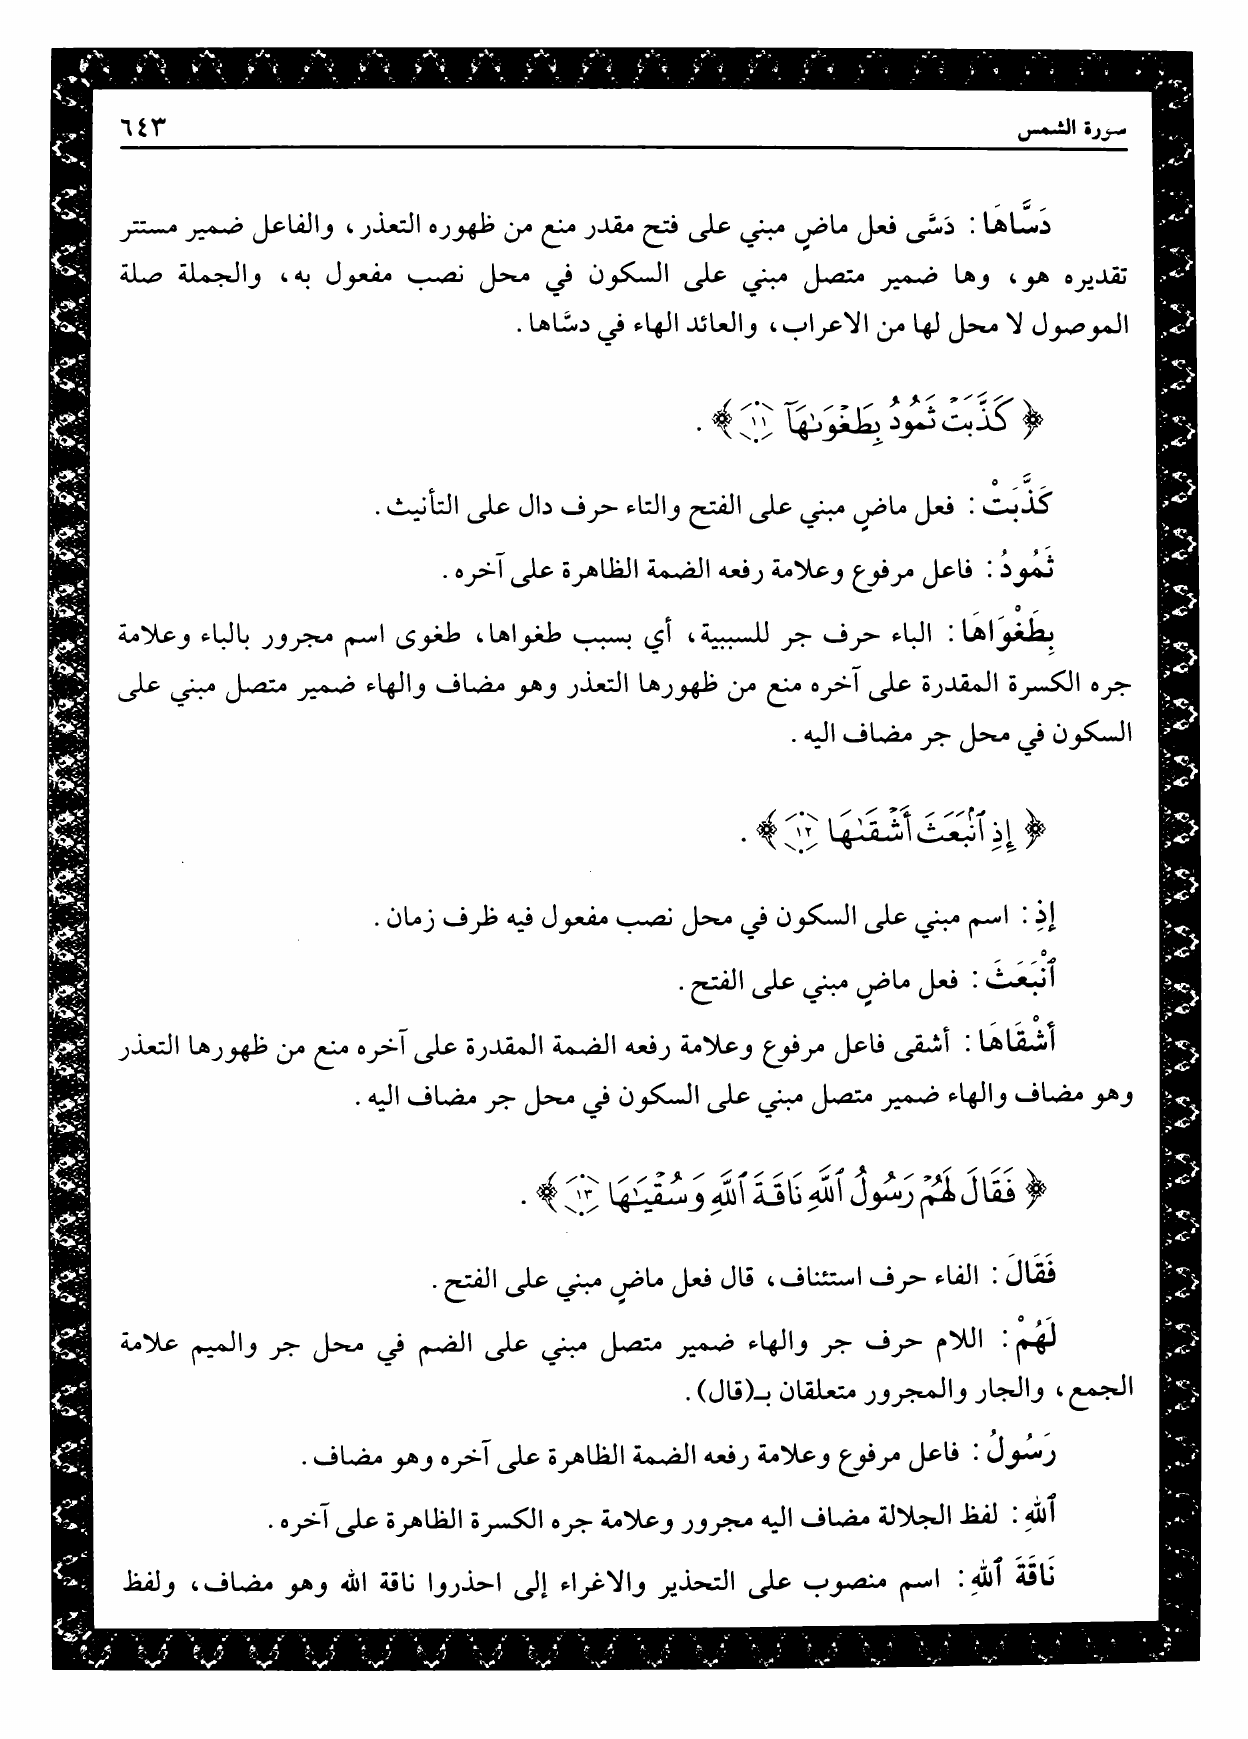 سورة الشمس
٦٤٣
دَسَّاهَا : دَسَّى فعل ماضٍ مبني على فتح مقدر منع من ظهوره التعذر ، والفاعل ضمير مستتر
تقديره هو ، وها ضمير متصل مبني على السكون في محل نصب مفعول به ، والجملة صلة
الموصول لا محل لها من الاعراب ، والعائد الهاء في دسَّاها .
﴿ كَذَّبَتۡ ثَمُودُ بِطَغۡوَىٰهَآ ١١ ﴾ .
كَذَّبَتْ : فعل ماضٍ مبني على الفتح والتاء حرف دال على التأنيث .
ثَمُودُ : فاعل مرفوع وعلامة رفعه الضمة الظاهرة على آخره .
بِطَغْوَاهَا : الباء حرف جر للسببية ، أي بسبب طغواها ، طغوى اسم مجرور بالباء وعلامة
جره الكسرة المقدرة على آخره منع من ظهورها التعذر وهو مضاف والهاء ضمير متصل مبني على
السكون في محل جر مضاف اليه .
﴿ إِذِ ٱنۢبَعَثَ أَشۡقَىٰهَا ١٢ ﴾ .
إذِ : اسم مبني على السكون في محل نصب مفعول فيه ظرف زمان .
ٱنْبَعَثَ : فعل ماضٍ مبني على الفتح .
أَشْقَاهَا : أشقى فاعل مرفوع وعلامة رفعه الضمة المقدرة على آخره منع من ظهورها التعذر
وهو مضاف والهاء ضمير متصل مبني على السكون في محل جر مضاف اليه .
﴿ فَقَالَ لَهُمۡ رَسُولُ ٱللَّهِ نَاقَةَ ٱللَّهِ وَسُقۡيَٰهَا ١٣ ﴾ .
فَقَالَ : الفاء حرف استئناف ، قال فعل ماضٍ مبني على الفتح .
لَهُمْ : اللام حرف جر والهاء ضمير متصل مبني على الضم في محل جر والميم علامة
الجمع ، والجار والمجرور متعلقان بـ(قال) .
رَسُولُ : فاعل مرفوع وعلامة رفعه الضمة الظاهرة على آخره وهو مضاف .
ٱللهِ : لفظ الجلالة مضاف اليه مجرور وعلامة جره الكسرة الظاهرة على آخره .
نَاقَةَ ٱللهِ : اسم منصوب على التحذير والاغراء إلى احذروا ناقة الله وهو مضاف ، ولفظ